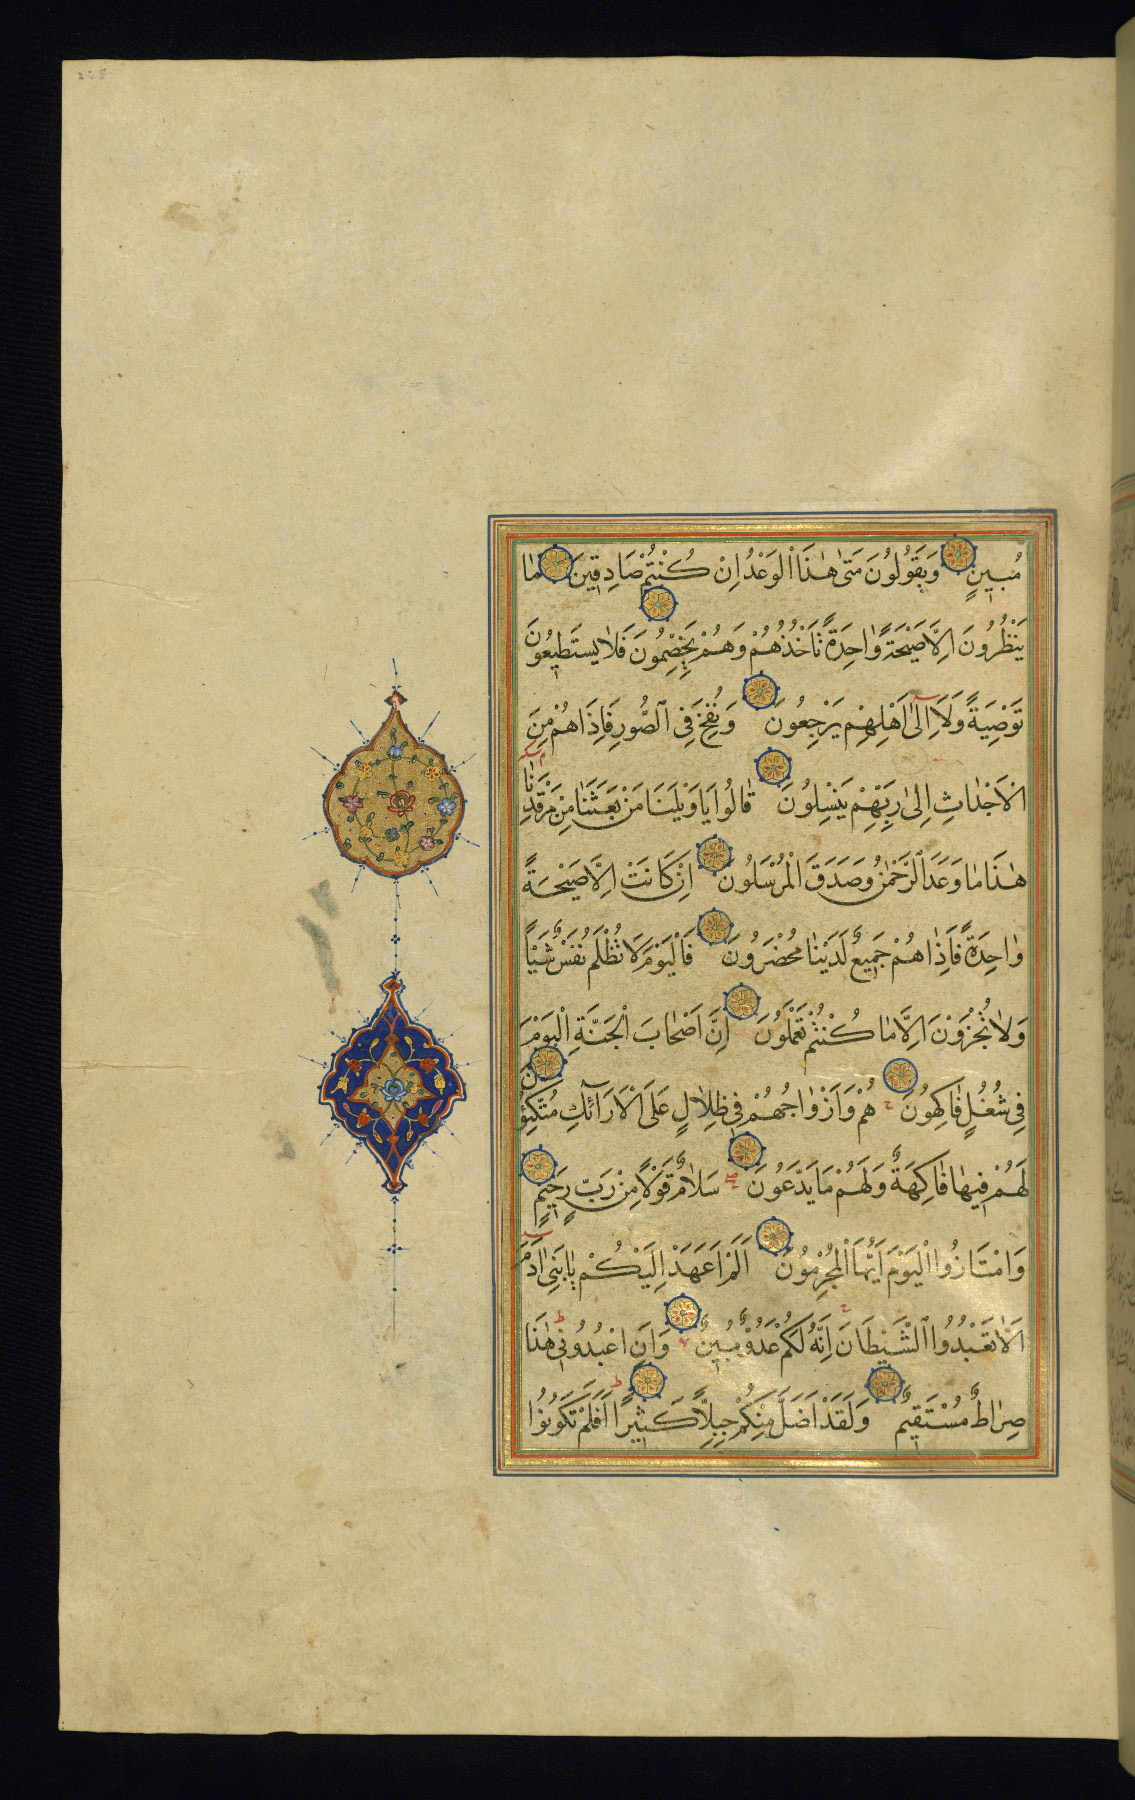 مُبِينٍ وَيَقُولُونَ مَتىٰ هٰذَا الْوَعْدُ اِنْ كُنْتُمْ صَادِقِينَ مٰا
يَنْظُرُونَ اِلَّا صَيْحَةً وٰاحِدَةً تَأْخُذُهُمْ وَهُمْ يَخِصِّمُونَ فَلٰا يَسْتَطِيعُونَ
تَوْصِيَةً وَلَا اِلٰٓى اَهْلِهِمْ يَرْجِعُونَ وَنُفِخَ فِى الصُّورِ فَاِذَا هُمْ مِنَ
الْاَجْدٰاثِ اِلىٰ رَبِّهِمْ يَنْسِلُونَ قٰالُوا يَا وَيْلَنَا مَنْ بَعَثَنٰا مِنْ مَرْقَدِنٰا
هٰذَا مٰا وَعَدَ الرَّحْمٰنُ وَصَدَقَ الْمُرْسَلُونَ اِنْ كَانَتْ اِلَّا صَيْحَةً
وٰاحِدَةً فَاِذٰا هُمْ جَمِيعٌ لَدَيْنٰا مُحْضَرُونَ فَالْيَوْمَ لَا تُظْلَمُ نَفْسٌ شَيْاً
وَلٰا تُجْزَوْنَ اِلَّا مٰا كُنْتُمْ تَعْمَلُونَ اِنَّ اَصْحٰابَ الْجَنَّةِ الْيَوْمَ
فِي شُغُلٍ فٰاكِهُونَ هُمْ وَاَزْوٰاجُهُمْ فِي ظِلٰالٍ عَلَى الْاَرَآئِكِ مُتَّكِئُونَ
لَهُمْ فِيهٰا فَاكِهَةٌ وَلَهُمْ مَا يَدَّعُونَ سَلٰامٌ قَوْلًا مِنْ رَبٍّ رَحِيمٍ
وَامْتَازُوا الْيَوْمَ اَيُّهَا الْمُجْرِمُونَ اَلَمْ اَعْهَدْ اِلَيْكُمْ يٰا بَنِى اٰدَمَ
اَلّٰا تَعْبُدُوا الشَّيْطَانَ اِنَّهُ لَكُمْ عَدُوٌّ مُبِينٌ وَاَنِ اعْبُدُونِى هٰذَا
صِرٰاطٌ مُسْتَقِيمٌ وَلَقَدْ اَضَلَّ مِنْكُمْ جِبِلًّا كَثِيرًا اَفَلَمْ تَكُونُوا